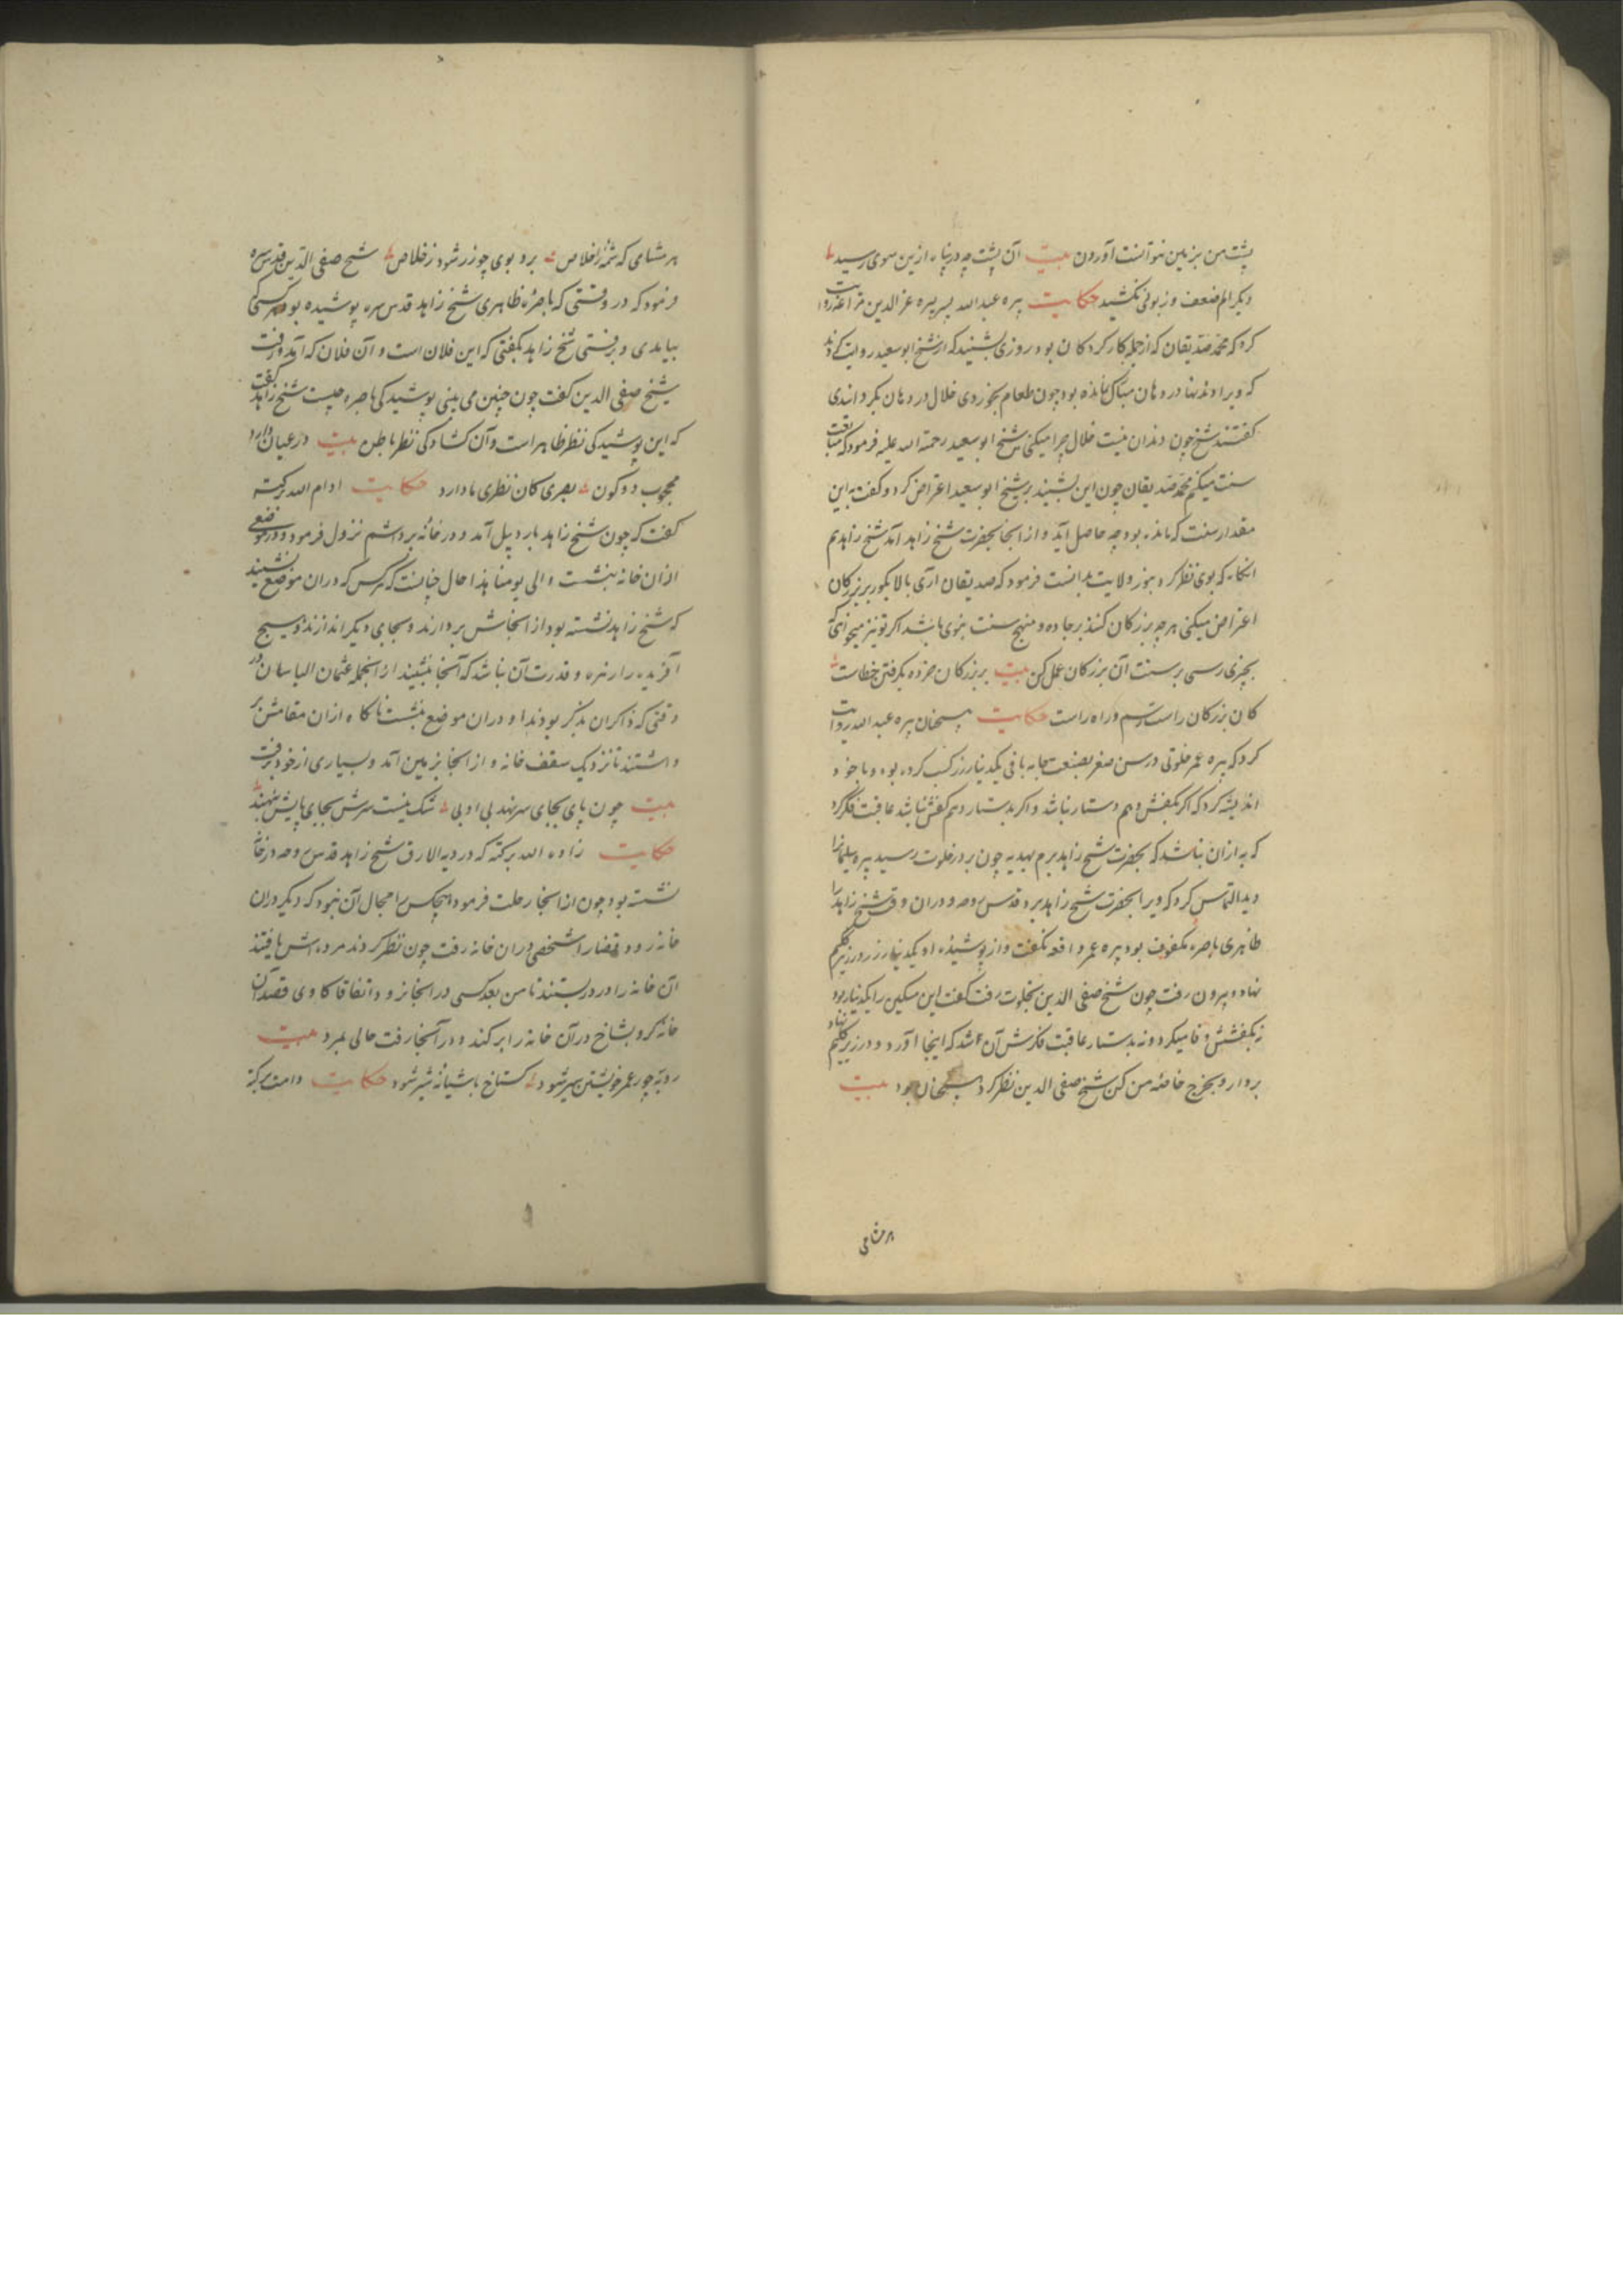 پشت من بزمین نتوانست آوردن بیت آن پشت چه درنیا‌ید از‌ین سوی رسید
دیگر الم ضعف و زبونی نکشید حکایت پیره عبدالله پسر پیره عزالدین مراغه روایت
کرد که محمد صدیقان که از جمله کارکردکان بود روزی بشنید که از شیخ ابو سعید روایت کردند
که ویرا دندنها در دهان نمانده بود چون طعام بخوردی خلال در دهان بگردانیدی
گفتند شیخ چون دندان نیست خلال چرا میکنی شیخ ابو سعید رحمة الله علیه فرمود که متابعت
سنت میکنم محمد صدیقان چون این بشنید بر شیخ ابو سعید اعتراض کرد و گفت به این
مقدار سنت که مانده بود چه حاصل آید و از انجا بحضرت شیخ زاهد آمد شیخ زاهد هم
انکاه که بوی نظر کرد بنور ولایت بدانست فرمود که صدیقان آری بالا بکور بر بزرکان
اعتراض میکنی هرچه بزرکان کنند بر جاده و منهج سنت نبوی باشد اکر تو نیز میخواهی که
بچیزی رسی بر سنت آن بزرکان عمل کن بیت بر بزرکان خرده بگرفتن خطاست
کان بزرکان راست رسم و راه راست حکایت همچنان پیره عبدالله روایت
کرد که پیره عمر خلوتی در سن صغر بصنعت جامه بافی یکدینار زر کسب کرده بود و با خود
اندیشه کرد که اکر بکفش دهم دستار نباشد و اکر بدستار دهم کفش نباشد عاقبت فکر کرد
که به ازان نباشد که بحضرت شیخ زاهد برم بهدیه چون بدر خلوت رسید پیره سلیمانرا
دید التماس کرد که ویرا بحضرت شیخ زاهد برد قدس روحه و دران وقت شیخ زاهد را
ظاهری باصره مکفوف بود پیره عمر واقعه نکفت و از پوشیده او یکدینار زر در زیر کلیم
نهاد و بیرون رفت چون شیخ صفی الدین بخلوت رفت گفت این مسکین را یکدینار بود
نه بکفشش وفا میکرد و نه بدستار عاقبت فکرش آن شد که اینجا آورد و در زیر کلیم نهاد
بردار و بخرج خاصه من کن شیخ صفی الدین نظر کرد همچنان بود بیت
هر مشامی
هر مشامی که شمّه ز اخلاص برد بوی چو زر شود ز خلاص شیخ صفی الدین قدس سره
فرمود که در وقتی که باصره ظاهری شیخ زاهد قدس سره پوشیده بود هر کسی که
بیامدی و برفتی شیخ زاهد بگفتی که این فلان است و آن فلان که آمد و رفت
شیخ صفی الدین گفت چون چنین می بینی پوشیدکی باصره چیست شیخ زاهد گفت
که این پوشیدکی نظر ظاهر است و آن کشادکی نظر باطن بیت در عیان دارد
محجوب دو کون بصری کان نظری با دارد حکایت ادام الله برکته
گفت که چون شیخ زاهد باردبیل آمد و در خانه نزول فرمود و در موضعی
ازان خانه بنشست و الی یومنا هذا حال چنانست که هر کس که دران موضع نشیند
که شیخ زاهد نشسته بود از انجاش بردارند و بجای دیگر اندازند و هیچ
آفریده را زهره و قدرت آن نباشد که آنجا بنشیند از انجمله عثمان الباسان در
وقتی که ذاکران بذکر بودند او دران موضع بنشست ناکاه ازان مقامش بر
داشتند تا نزدیک سقف خانه و از انجا بزمین آمد و بسیاری از خود برفت
بیت چون پای بجای سر نهد بی ادبی شک نیست سرش بجای پایش بنهند
حکایت زاده الله برکته که در دیه الارق شیخ زاهد قدس روحه در خانه
نشسته بود چون از انجا رحلت فرمود هیچکس را مجال آن نبود که دیکر دران
خانه رود قضا را شخصی دران خانه رفت چون نظر کردند مرده اش یافتند
آن خانه را در دربستند تا من بعد کسی در انجا نرود اتفاقا کاوی قصد آن
خانه کرد و بشاخ در آن خانه را برکند و در آنجا رفت حالی بمرد بیت
روبه چو ز عمر خویشتن سیر شود کستاخ باشیانه شیر شود حکایت دامت برکته